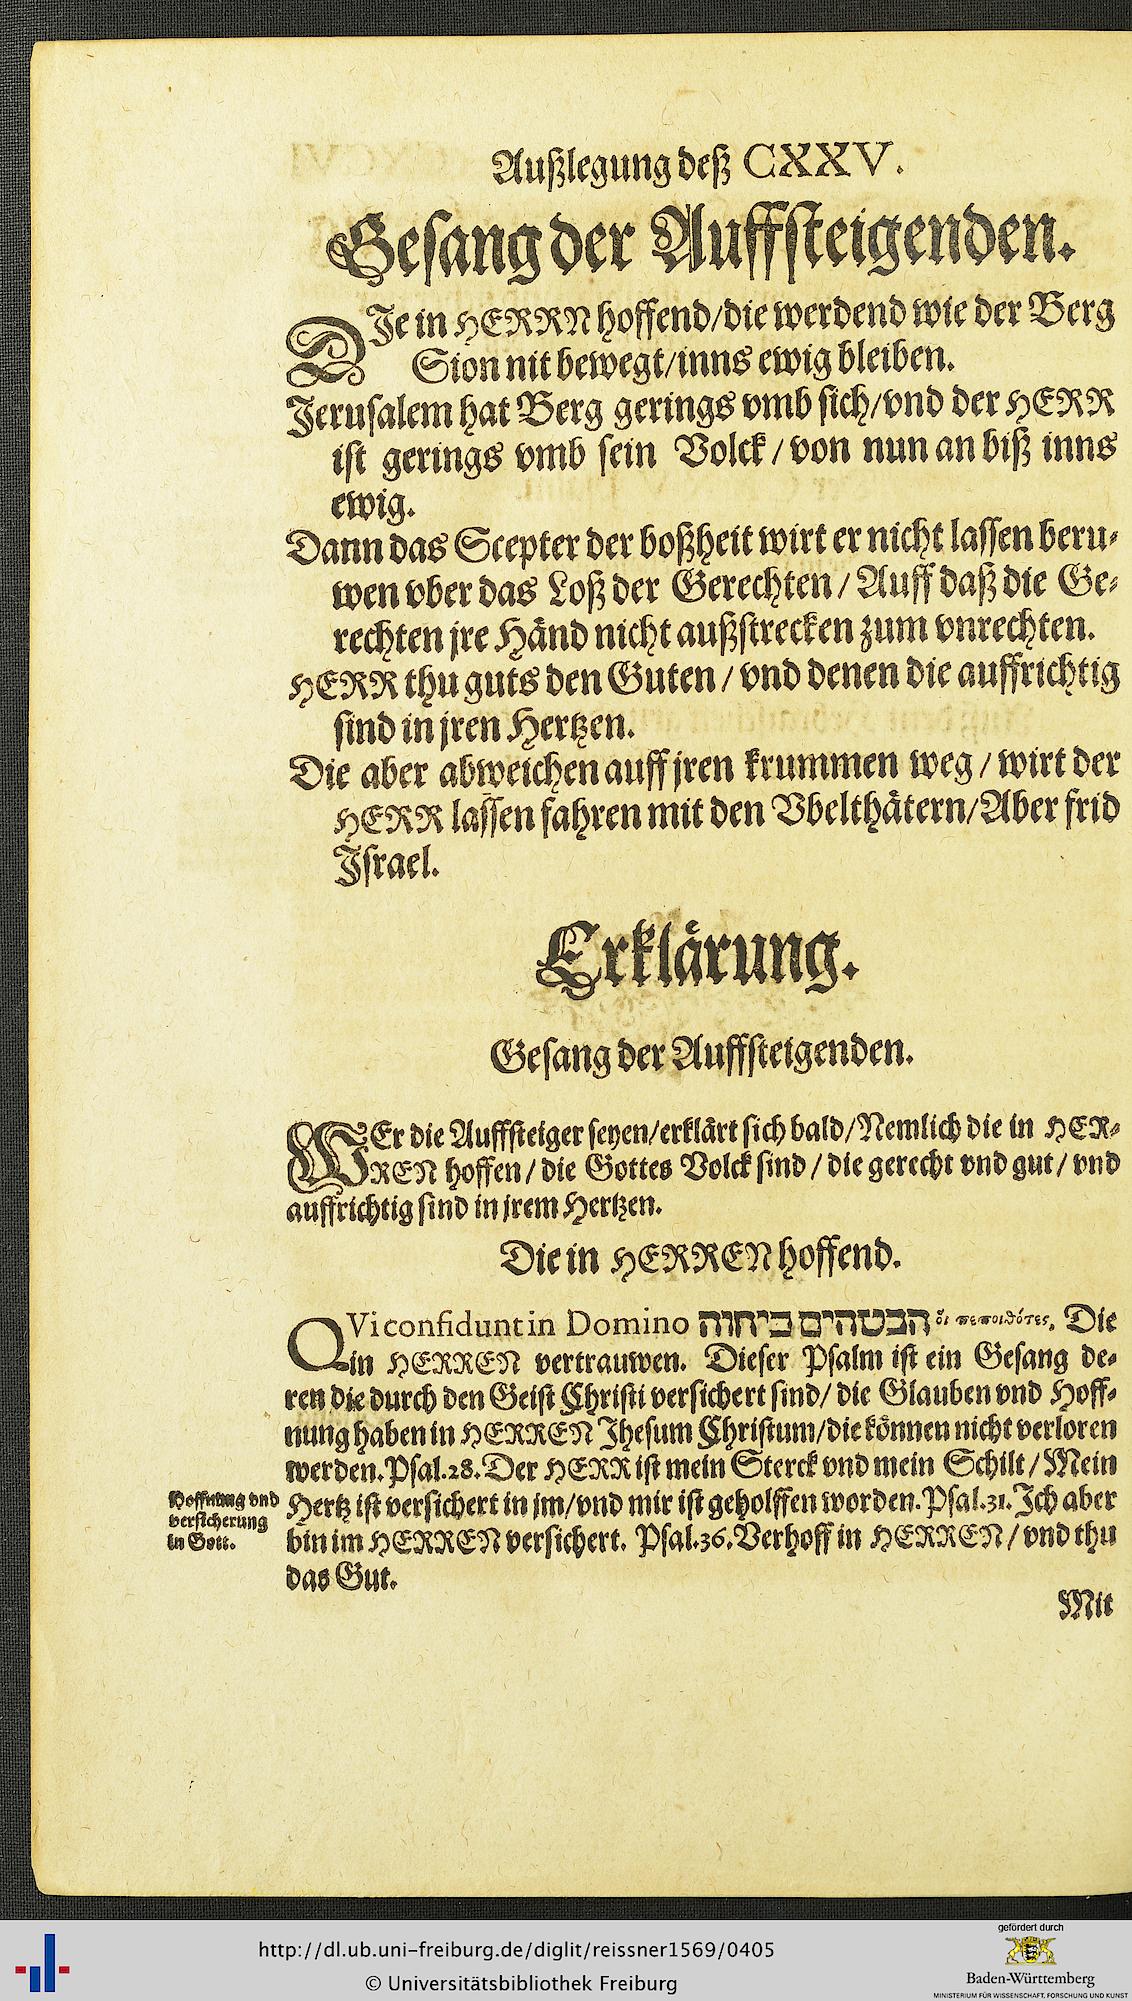 Außlegung deß CXXV.
Gesang der Auffsteigenden.
DJe in HERRN hoffend/die werdend wie der Berg
Sion nit bewegt/inns ewig bleiben.
Jerusalem hat Berg gerings vmb sich/vnd der HERR
ist gerings vmb sein Volck/von nun an biß inns
ewig.
Dann das Scepter der boßheit wirt er nicht lassen beru⸗
wen vber das Loß der Gerechten/Auff daß die Ge⸗
rechten jre Hånd nicht außstrecken zum vnrechten.
HERR thu guts den Guten/vnd denen die auffrichtig
sind in jren Hertzen.
Die aber abweichen auff jren krummen weg/wirt der
HERR lassen fahren mit den Vbelthåtern/Aber frid
Jsrael.
Erklårung.
Gesang der Auffsteigenden.
WEr die Auffsteiger seyen/erklårt sich bald/Nemlich die in HER⸗
REN hoffen/die Gottes Volck sind/die gerecht vnd gut/vnd
auffrichtig sind in jrem Hertzen.
Die in HERREN hoffend.
QVi confidunt in Domino הבטהים ביחוה οἱ πεποιθότες. Die
in HERREN vertrauwen. Dieser Psalm ist ein Gesang de⸗
ren die durch den Geist Christi versichert sind/die Glauben vnd Hoff⸗
nung haben in HERREN Jhesum Christum/die können nicht verloren
werden. Psal.28. Der HERR ist mein Sterck vnd mein Schilt/Mein
Hertz ist versichert in jm/vnd mir ist geholffen worden. Psal.31. Jch aber
bin im HERREN versichert. Psal.36. Verhoff in HERREN/vnd thu
das Gut.
Hoffnung vnd
versicherung
in Gott.
Mit
http://dl.ub.uni-freiburg.de/diglit/reissner1569/0405
© Universitätsbibliothek Freiburg
gefördert durch
Baden-Württemberg
MINISTERIUM FÜR WISSENSCHAFT, FORSCHUNG UND KUNST